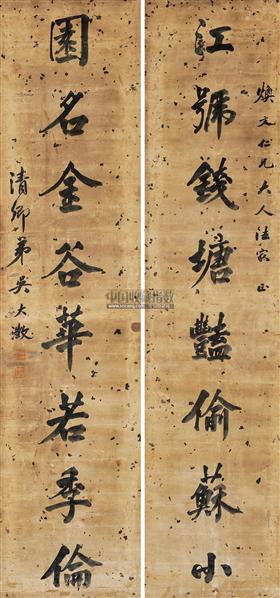 煥文仁兄大人法家正
江號錢塘豔偷蘇小
園名金谷華若季倫
清卿弟吳大澂
中国收藏指数